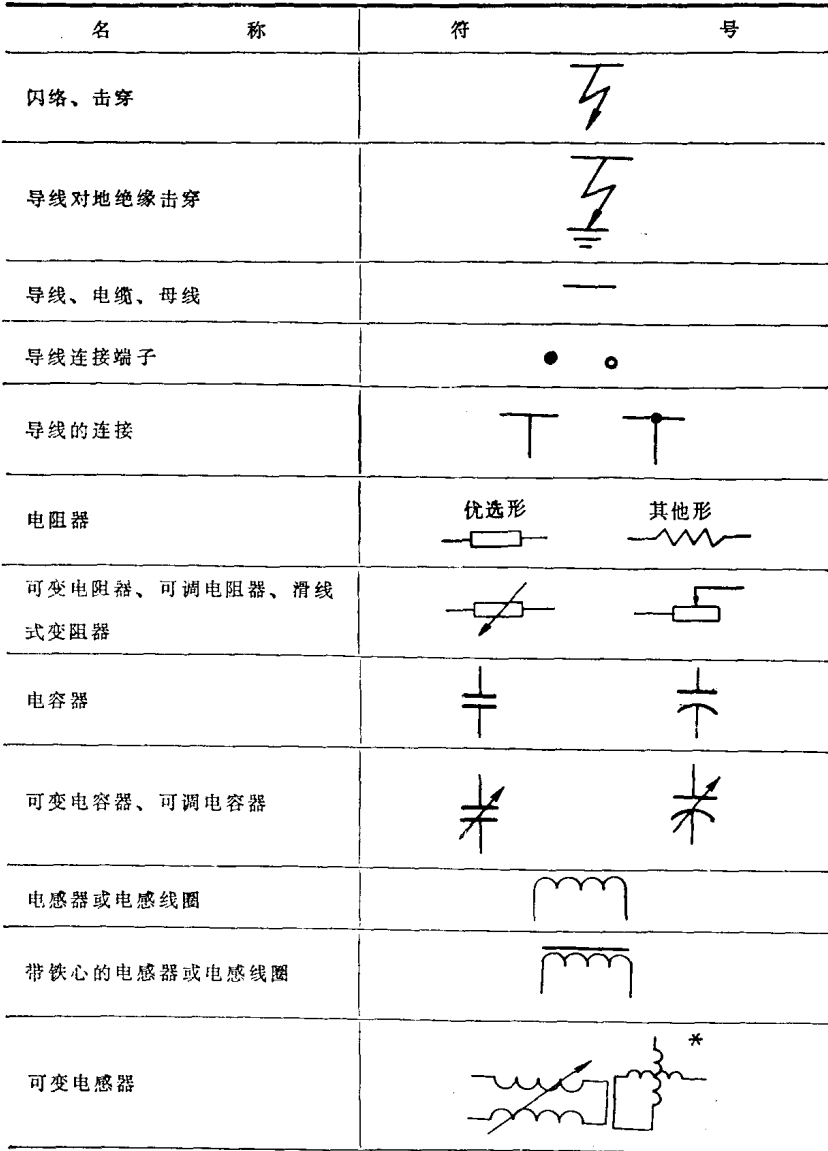 名 称 符 号
闪络、击穿
导线对地绝缘击穿
导线、电缆、母线
导线连接端子
导线的连接
电阻器 优选形 其他形
可变电阻器、可调电阻器、滑线
式变阻器
电容器
可变电容器、可调电容器
电感器或电感线圈
带铁心的电感器或电感线圈
可变电感器 *